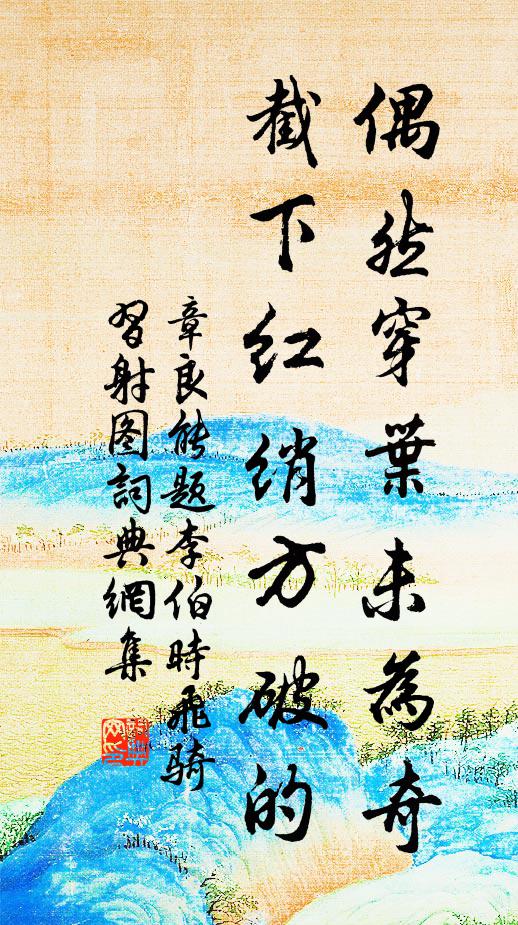 偶然穿葉未為奇
截下红綃方破的
章良能题李伯時飛騎
習射图詞典網集